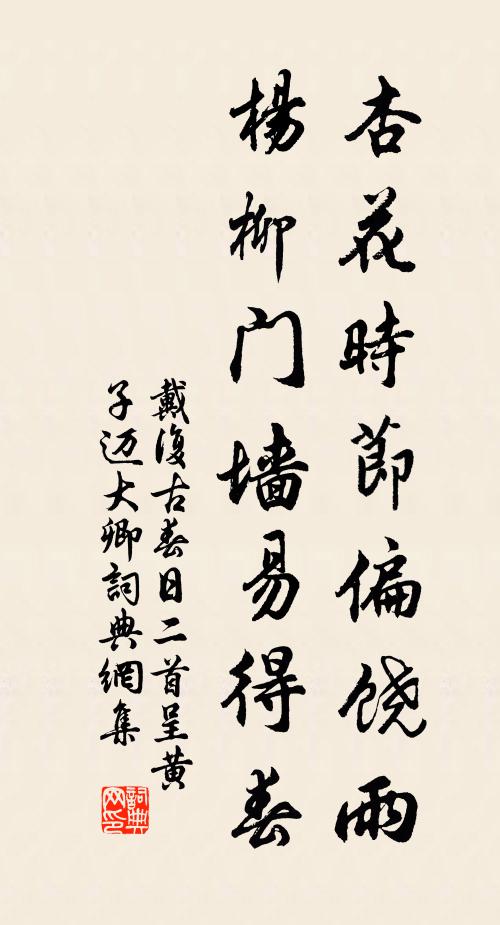 杏花時節偏饶雨
楊柳门墙易得春
戴復古春日二首呈黄
子迈大卿詞典網集
詞典网印